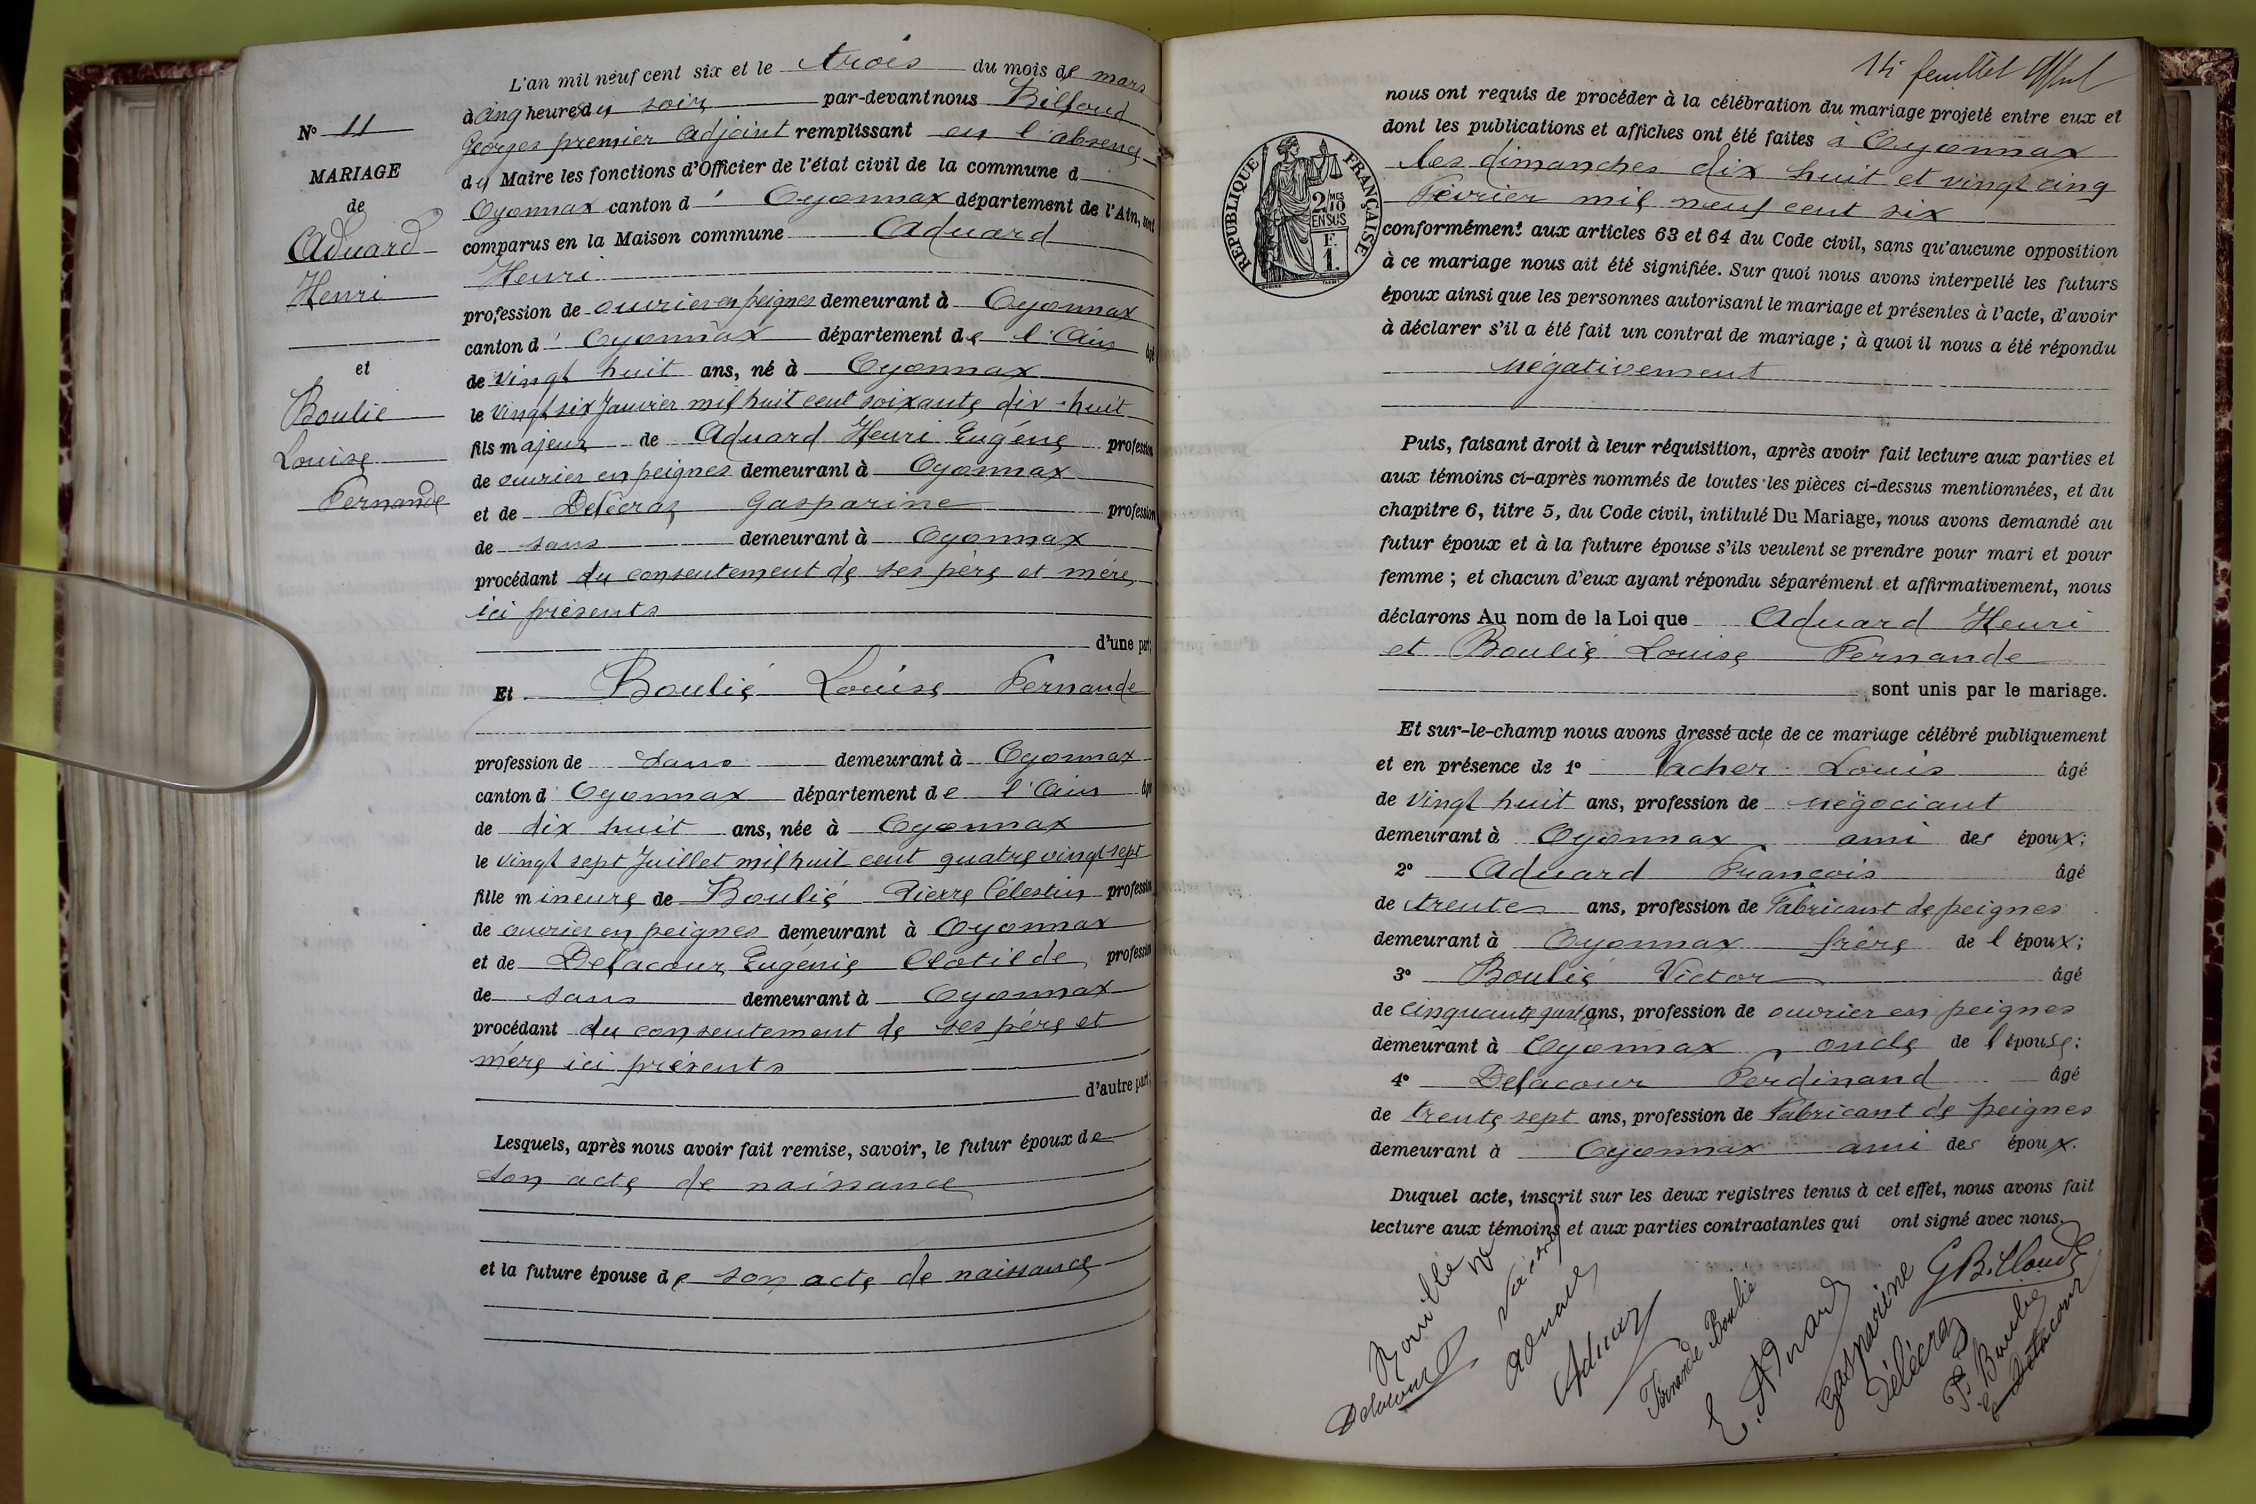 N° 11
MARIAGE
de
Aduard
Henri
et
Boulié
Louise
Fernande
L'an mil neuf cent six et le trois du mois de mars
à cinq heures du soir par-devant nous Billoud
Georges premier Adjoint remplissant en l'absence
du Maire les fonctions d'Officier de l'état civil de la commune d
Oyonnax canton d' Oyonnax département de l'Ain, sont
comparus en la Maison commune Aduard
Henri
profession de ouvrier en peignes demeurant à Oyonnax
canton d' Oyonnax département de l'Ain âgé
de vingt huit ans, né à Oyonnax
le vingt six Janvier mil huit cent soixante dix-huit
fils majeur de Aduard Henri Eugène profession
de ouvrier en peignes demeurant à Oyonnax
et de Delécraz Gasparine profession
de sans demeurant à Oyonnax
procédant du consentement de ses père et mère,
ici présents
d'une part;
Et Boulié Louise Fernande
profession de sans demeurant à Oyonnax
canton d' Oyonnax département de l'Ain âgée
de dix huit ans, née à Oyonnax
le vingt sept Juillet mil huit cent quatre vingt sept
fille mineure de Boulié Pierre Célestin profession
de ouvrier en peignes demeurant à Oyonnax
et de Delacour Eugénie Clotilde, profession
de sans demeurant à Oyonnax
procédant du consentement de ses père et
mère ici présents
d'autre part;
Lesquels, après nous avoir fait remise, savoir, le futur époux de
son acte de naissance
et la future épouse de son acte de naissance
14 feuillet
nous ont requis de procéder à la célébration du mariage projeté entre eux et
dont les publications et affiches ont été faites à Oyonnax
les dimanches dix huit et vingt cinq
Février mil neuf cent six
RÉPUBLIQUE FRANÇAISE
2/10 MES
EN SUS
F.
1.
conformément aux articles 63 et 64 du Code civil, sans qu'aucune opposition
à ce mariage nous ait été signifiée. Sur quoi nous avons interpellé les futurs
époux ainsi que les personnes autorisant le mariage et présentes à l'acte, d'avoir
à déclarer s'il a été fait un contrat de mariage; à quoi il nous a été répondu
négativement
Puis, faisant droit à leur réquisition, après avoir fait lecture aux parties et
aux témoins ci-après nommés de toutes les pièces ci-dessus mentionnées, et du
chapitre 6, titre 5, du Code civil, intitulé Du Mariage, nous avons demandé au
futur époux et à la future épouse s'ils veulent se prendre pour mari et pour
femme; et chacun d'eux ayant répondu séparément et affirmativement, nous
déclarons Au nom de la Loi que Aduard Henri
et Boulié Louise Fernande
sont unis par le mariage.
Et sur-le-champ nous avons dressé acte de ce mariage célébré publiquement
et en présence de 1° Vacher Louis âgé
de vingt huit ans, profession de négociant
demeurant à Oyonnax ami des époux;
2° Aduard François âgé
de trente ans, profession de Fabricant de peignes
demeurant à Oyonnax frère de l époux;
3° Boulié Victor âgé
de cinquante quatre ans, profession de ouvrier en peignes
demeurant à Oyonnax oncle de l épouse;
4° Delacour Ferdinand âgé
de trente sept ans, profession de Fabricant de peignes
demeurant à Oyonnax ami des époux.
Duquel acte, inscrit sur les deux registres tenus à cet effet, nous avons fait
lecture aux témoins et aux parties contractantes qui ont signé avec nous.
Delacour
Aduard
Aduard
Fernande Boulié
E. Aduard
Gasparine
Delécraz
G Billoud
P. Boulié
E Delacour